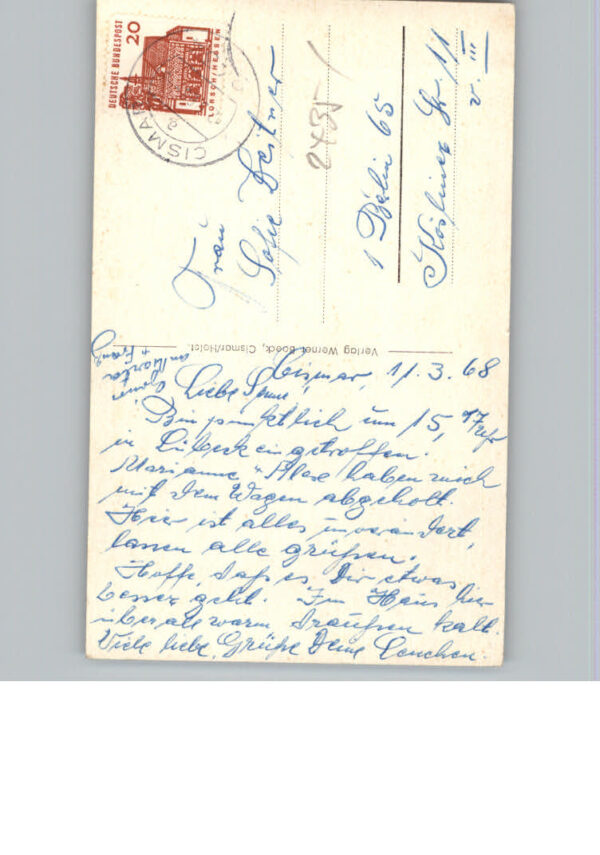 20
DEUTSCHE BUNDESPOST
LORSCH/HESSEN
CISMAR
2435
Frau
Sofie
1 Berlin 65
Kösliner Str. 11
v. III
Verlag Werner Boeck, Cismar/Holst.
an Marta
+ Franz
Cismar, 11.3.68
Liebe
Bin pünktlich um 15,17 Uhr
in Lübeck eingetroffen.
Marianne u. Alex haben mich
mit dem Wagen abgeholt.
Hier ist alles unverändert,
lassen alle grüßen.
Hoffe, daß es Dir etwas
besser geht. Im Haus hier
überall warm draußen kalt.
Viele liebe Grüße Deine Lenchen.